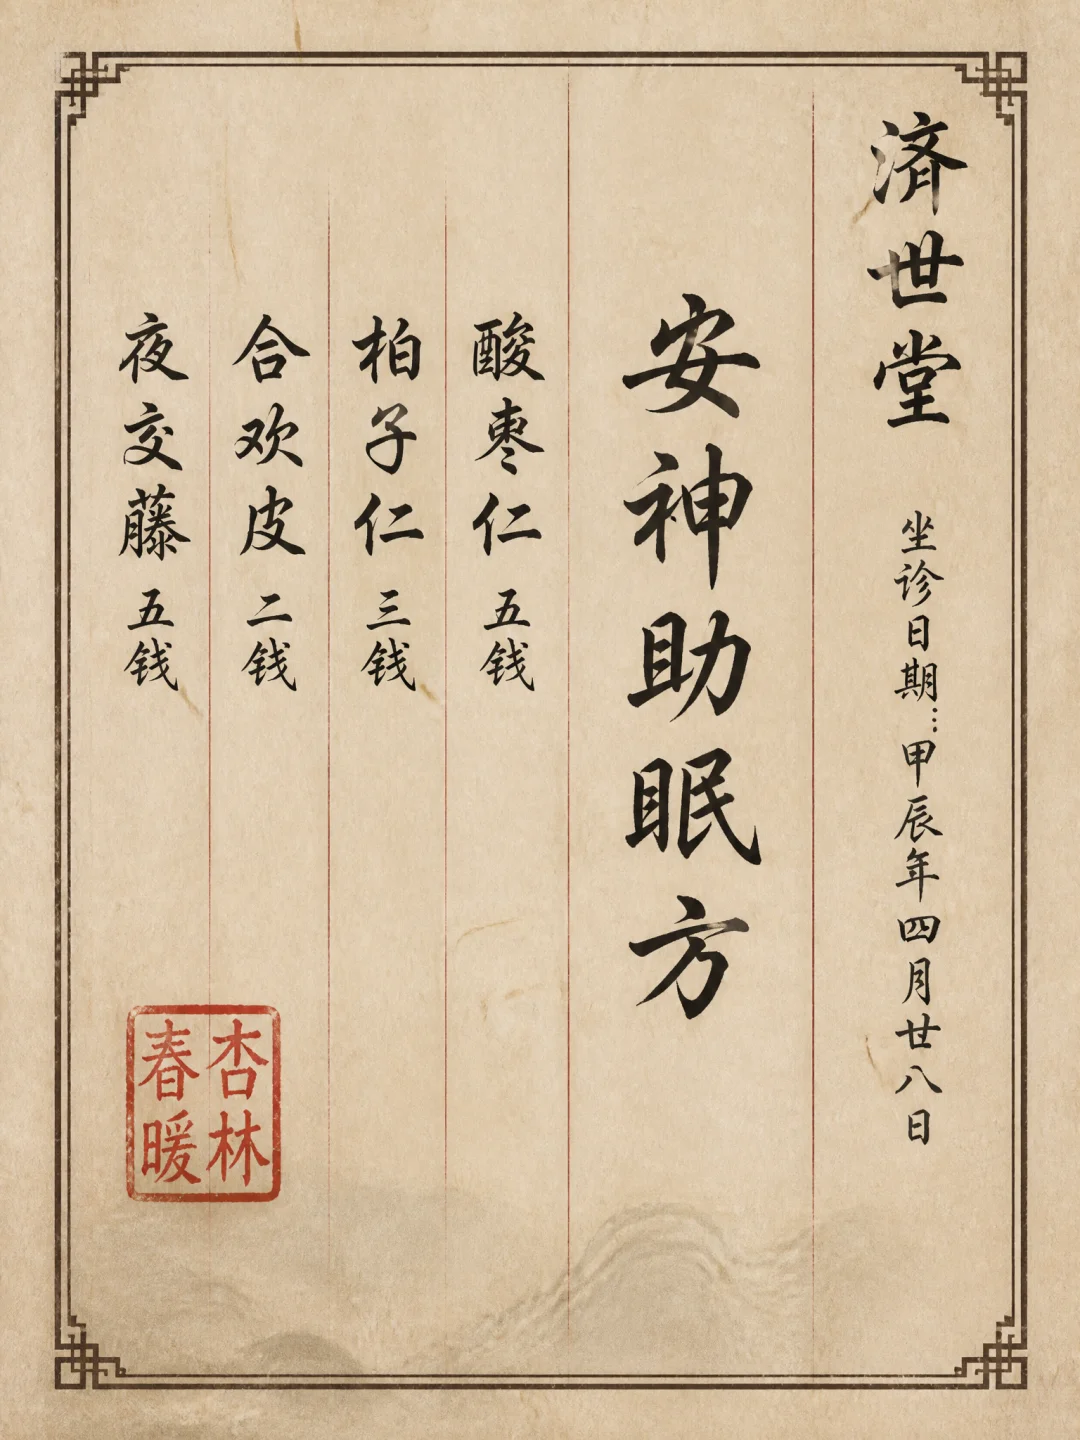 済世堂
坐诊日期：甲辰年四月廿八日
安神助眠方
酸枣仁 五钱
柏子仁 三钱
合欢皮 二钱
夜交藤 五钱
杏林
春暖